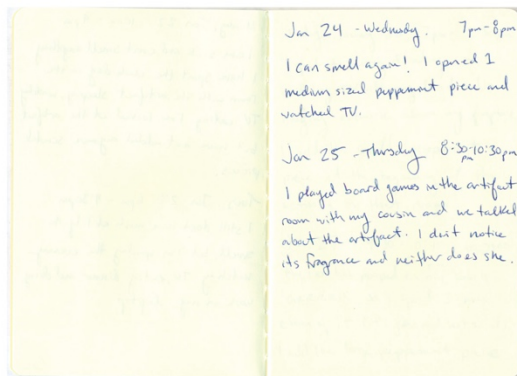 Jan 24 - Wednesday. 7pm-8pm
I can smell again! I opened 1
medium sized peppermint piece and
watched TV.
Jan 25 - Thursday 8:30pm-10:30pm
I played board games in the artifact
room with my cousin and we talked
about the artifact. I don't notice
its fragrance and neither does she.